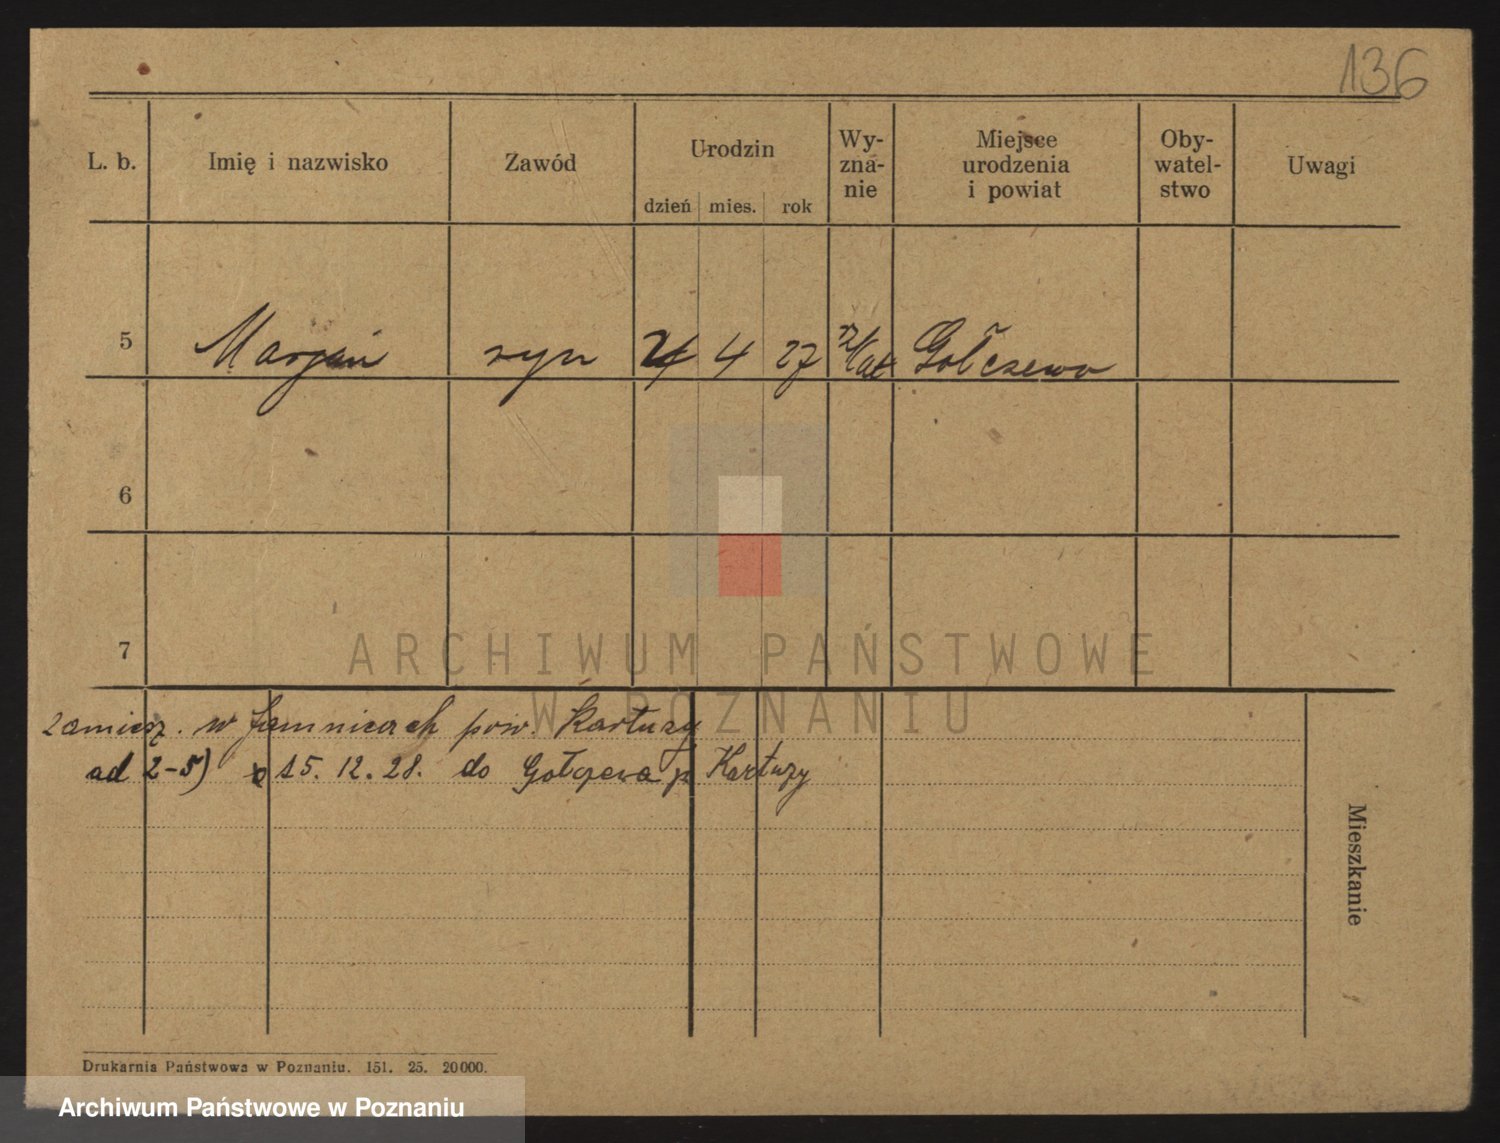 136
L. b. Imię i nazwisko Zawód Urodzin Wy-zna-nie Miejsce urodzenia i powiat Oby-watel-stwo Uwagi
dzień mies. rok
5 Marjan syn 4 27 Gołczewo
6
7
ARCHIWUM PAŃSTWOWE
W POZNANIU
zamiesz. w pow. Kartuzy
ad 2-5) 15. 12. 28. do Gołczewa p Kartuzy
Mieszkanie
Drukarnia Państwowa w Poznaniu. 151. 25. 20000.
Archiwum Państwowe w Poznaniu